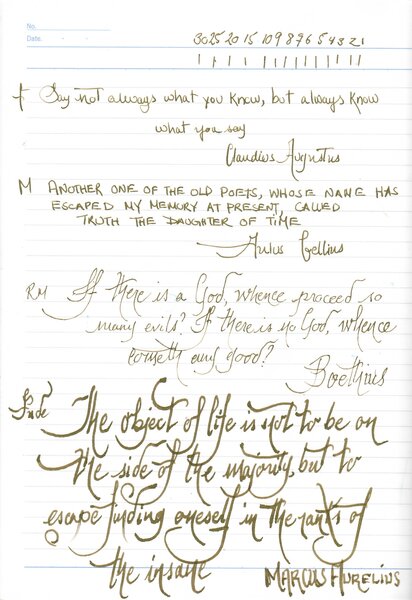 No.
Date.
30 25 20 15 10 9 8 7 6 5 4 3 2 1
f Say not always what you know, but always know
what you say
Claudius Augustus
M ANOTHER ONE OF THE OLD POETS, WHOSE NAME HAS
ESCAPED MY MEMORY AT PRESENT, CALLED
TRUTH THE DAUGHTER OF TIME
Aulus Gellius
RM If there is a God, whence proceed so
many evils? If there is no God, whence
cometh any good?
Boethius
The object of life is not to be on
the side of the majority, but to
escape finding oneself in the ranks of
the insane MARCUS AURELIUS